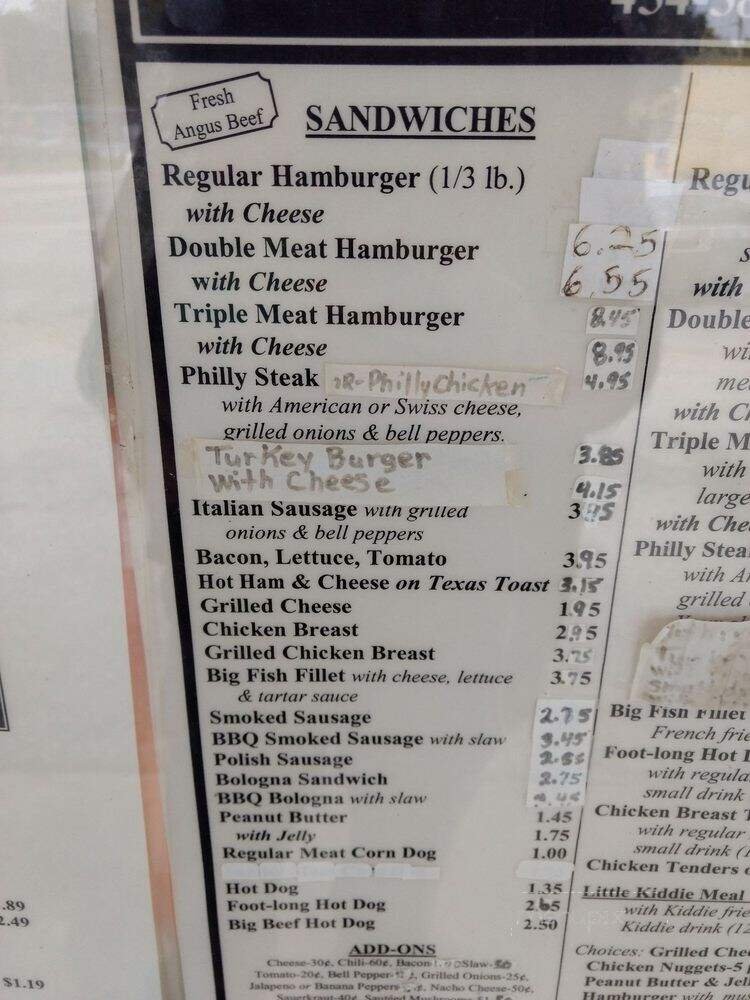 Fresh
Angus Beef
SANDWICHES
Regular Hamburger (1/3 lb.)
with Cheese
Double Meat Hamburger 6.25
with Cheese 6.55
Triple Meat Hamburger 8.45
with Cheese 8.95
Philly Steak OR-Philly Chicken 4.95
with American or Swiss cheese,
grilled onions & bell peppers.
Turkey Burger 3.85
with Cheese 4.15
Italian Sausage with grilled
onions & bell peppers
Bacon, Lettuce, Tomato 3.95
Hot Ham & Cheese on Texas Toast 3.15
Grilled Cheese 1.95
Chicken Breast 2.95
Grilled Chicken Breast 3.75
Big Fish Fillet with cheese, lettuce 3.75
& tartar sauce
Smoked Sausage 2.75
BBQ Smoked Sausage with slaw 3.45
Polish Sausage
Bologna Sandwich 2.75
BBQ Bologna with slaw
Peanut Butter 1.45
with Jelly 1.75
Regular Meat Corn Dog 1.00
Hot Dog 1.35
Foot-long Hot Dog 2.65
Big Beef Hot Dog 2.50
ADD-ONS
Cheese-30¢, Chili-60¢, Bacon Slaw-
Tomato-20¢, Bell Pepper- Grilled Onions-25¢,
Jalapeno or Banana Peppers- Nacho Cheese-50¢,
Sauerkraut-40¢, Sautéed Mushrooms
.89
2.49
$1.19
Regu
with
Double
wi
me
with Ch
Triple M
with
large
with Che
Philly Stea
with A
grilled
Big Fish Fillet
French frie
Foot-long Hot
with regula
small drink
Chicken Breast
with regular
small drink
Chicken Tenders
Little Kiddie Meal
with Kiddie frie
Kiddie drink (12
Choices: Grilled Che
Chicken Nuggets-5
Peanut Butter & Je
Hamburger with